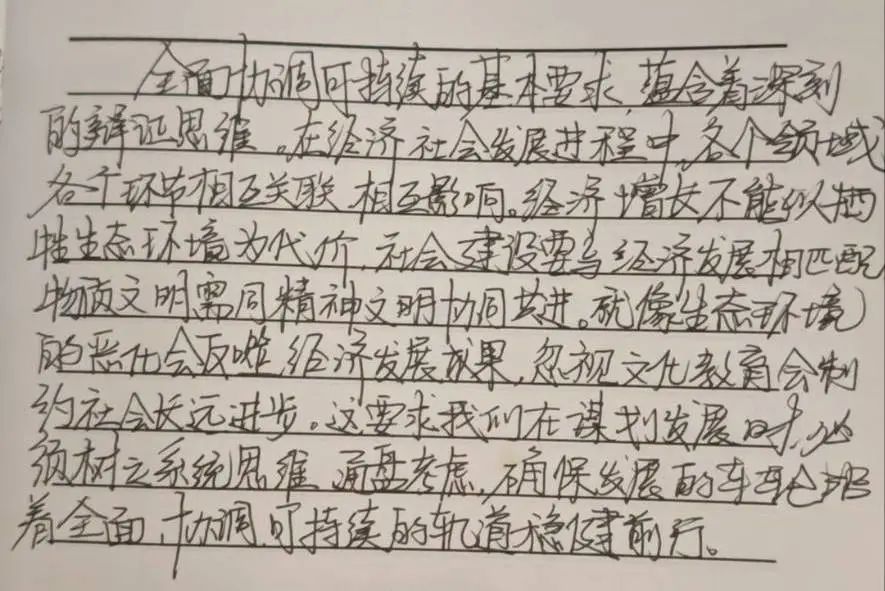 全面协调可持续的基本要求,蕴含着深刻
的辩证思维。在经济社会发展进程中,各个领域
各个环节相互关联,相互影响。经济增长不能以牺
牲生态环境为代价,社会建设要与经济发展相匹配
物质文明需同精神文明协同共进。就像生态环境
的恶化会反噬经济发展成果,忽视文化教育会制
约社会长远进步。这要求我们在谋划发展时,必
须树立系统思维,通盘考虑,确保发展的车轮沿
着全面、协调、可持续的轨道稳健前行。